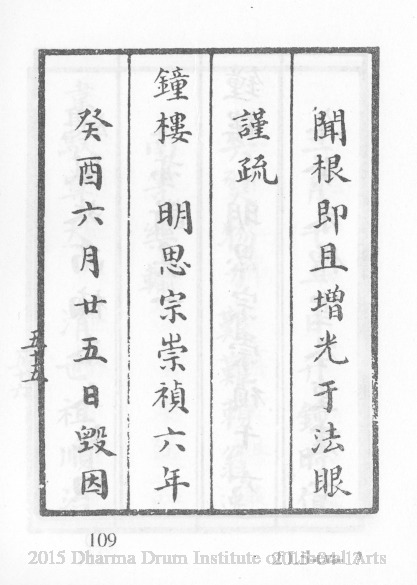 聞根即且增光于法眼
謹疏
鐘樓　明思宗崇禎六年
癸酉六月廿五日毀因
五十五
109
2015 Dharma Drum Institute of Liberal Arts